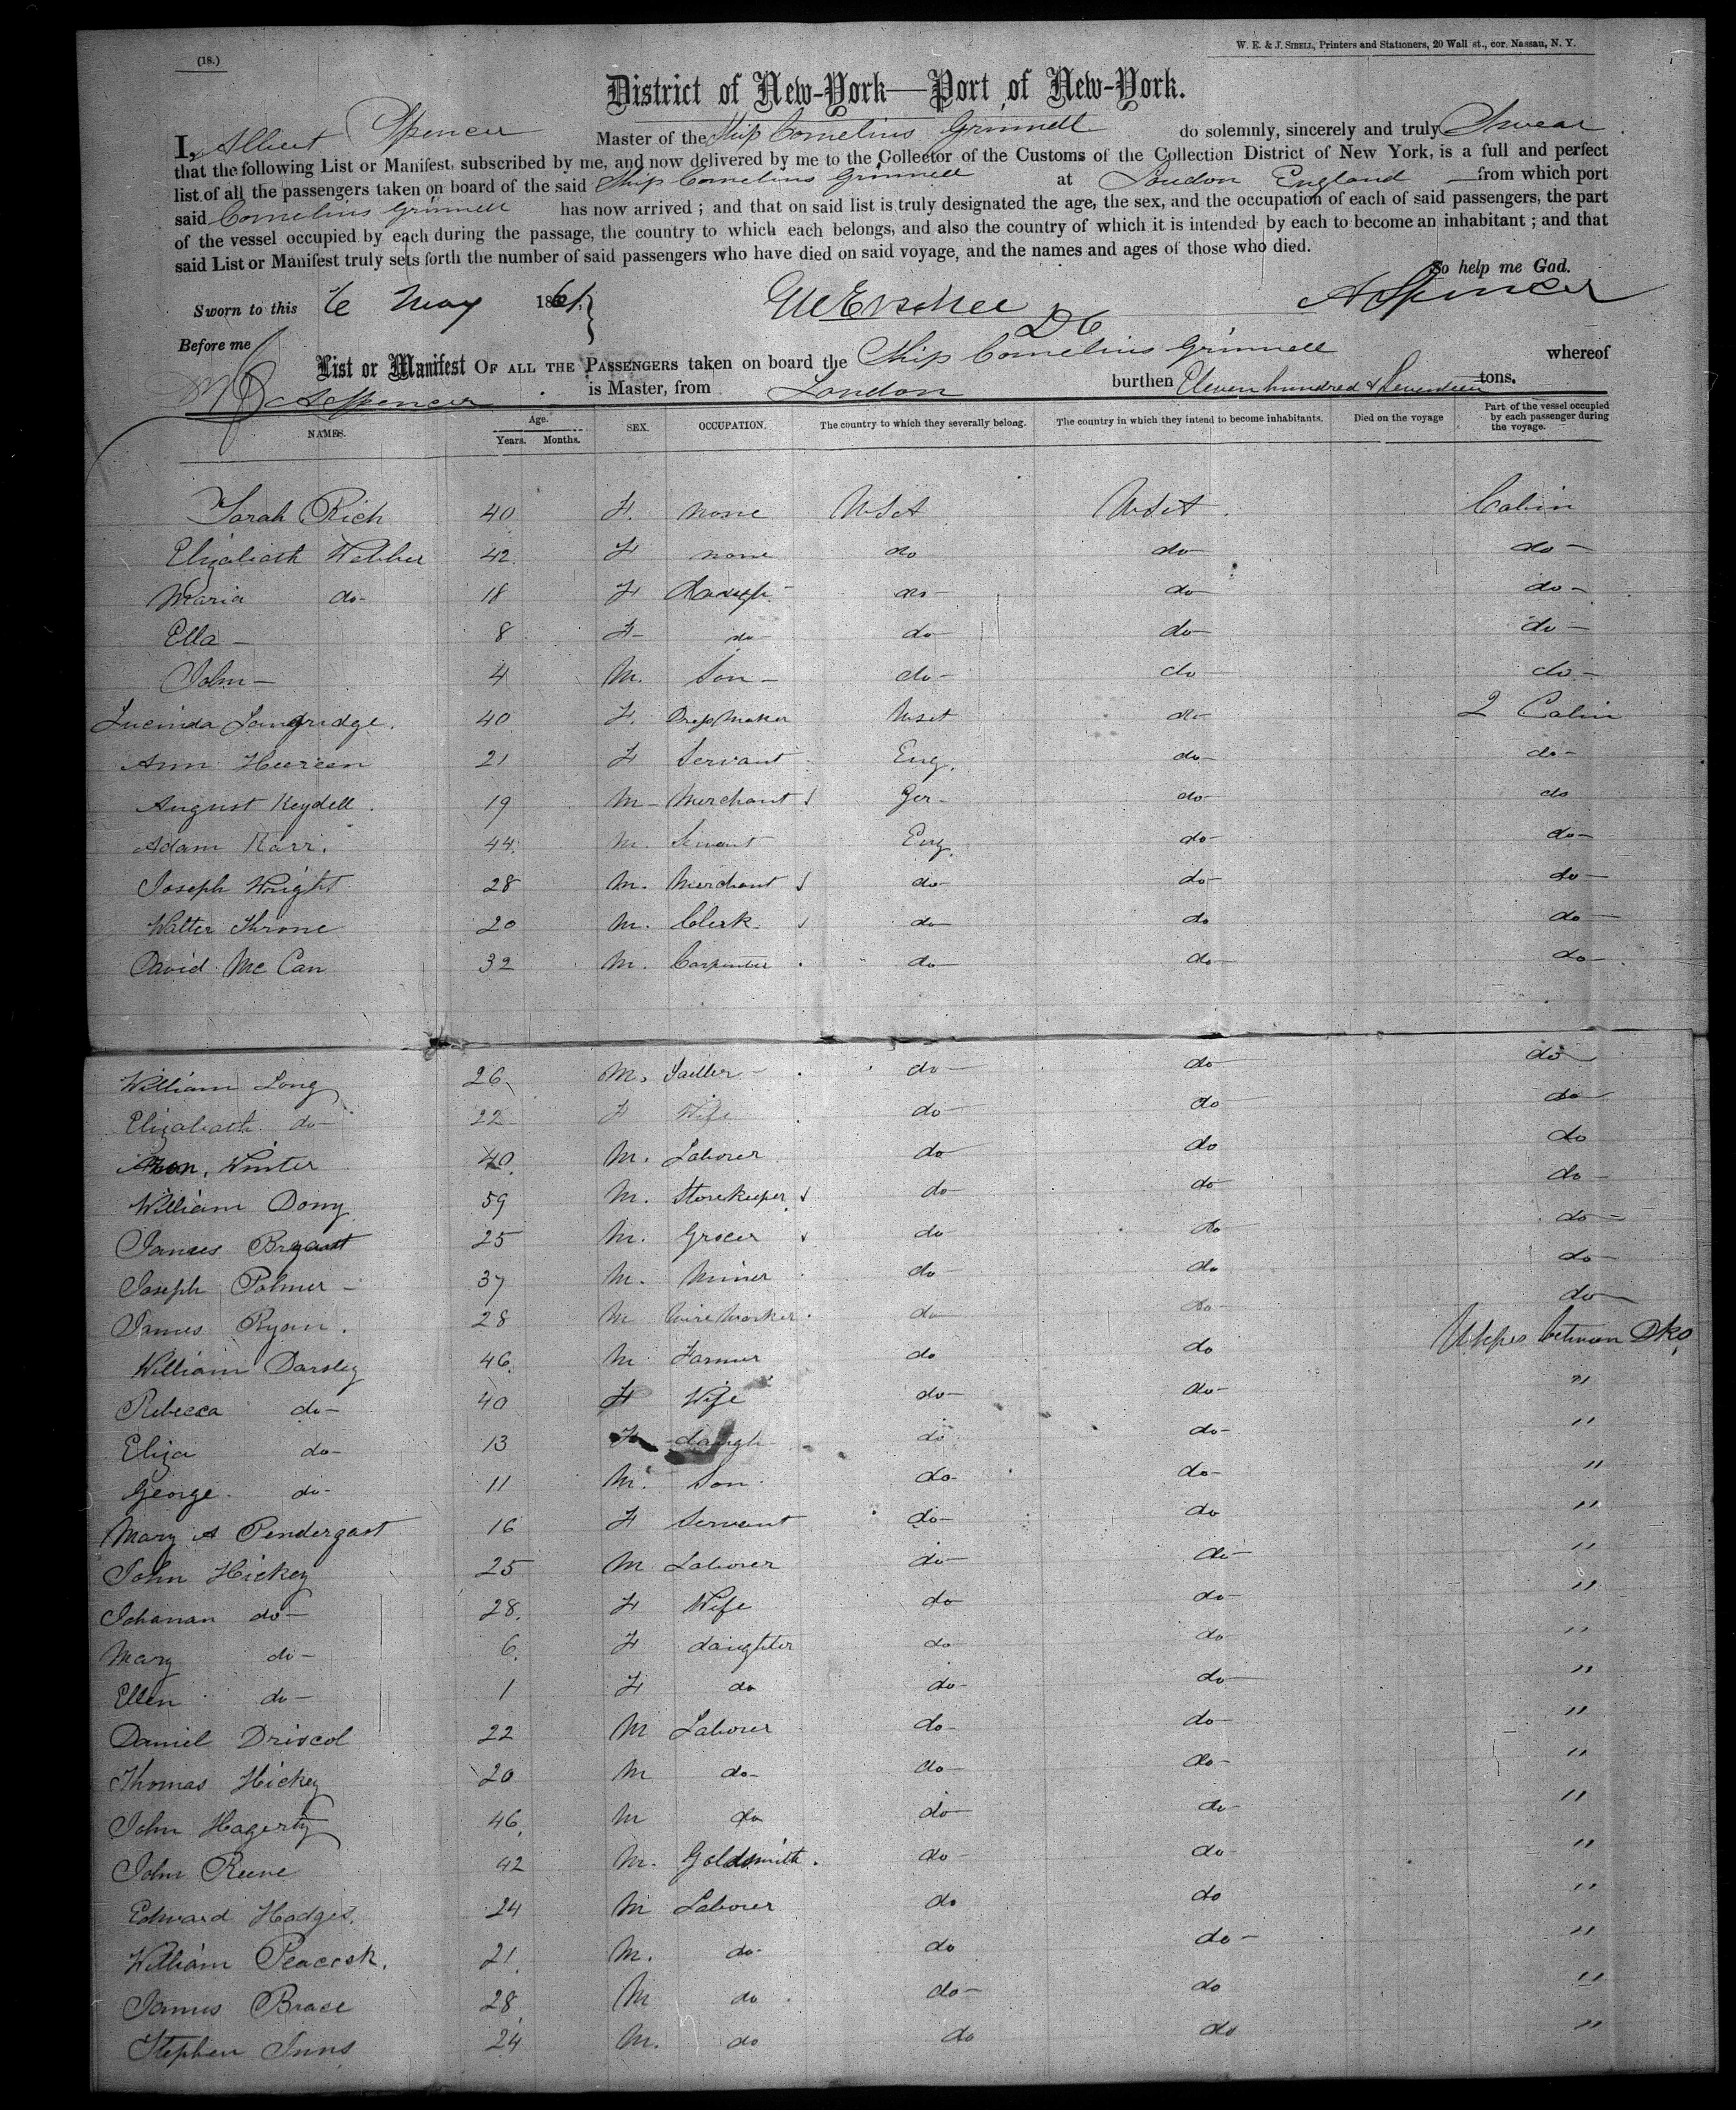 (18.)
W. E. & J. SIBELL, Printers and Stationers, 20 Wall st., cor. Nassau, N. Y.
District of New-York—Port of New-York.
I, Albert Spencer Master of the Ship Cornelius Grinnell do solemnly, sincerely and truly Swear
that the following List or Manifest, subscribed by me, and now delivered by me to the Collector of the Customs of the Collection District of New York, is a full and perfect
list of all the passengers taken on board of the said Ship Cornelius Grinnell at London England from which port
said Cornelius Grinnell has now arrived ; and that on said list is truly designated the age, the sex, and the occupation of each of said passengers, the part
of the vessel occupied by each during the passage, the country to which each belongs, and also the country of which it is intended by each to become an inhabitant ; and that
said List or Manifest truly sets forth the number of said passengers who have died on said voyage, and the names and ages of those who died.
So help me God.
Sworn to this 6 May 1861. A Spencer
Before me
List or Manifest OF ALL THE PASSENGERS taken on board the Ship Cornelius Grinnell whereof
A Spencer is Master, from London burthen Eleven hundred & Seventeen tons.
NAMES. Age. Years. Months. SEX. OCCUPATION. The country to which they severally belong. The country in which they intend to become inhabitants. Died on the voyage Part of the vessel occupied by each passenger during the voyage.
Sarah Rich 40 F. none USA USA Cabin
Elizabeath Webber 42 F none do do do
Maria do 18 F do do do
Ella 8 F do do do do
John 4 M. Son do do do
Lucinda Langridge. 40 F. Dress Maker USA do 2 Cabin
Ann Heereen 21 F Servant Eng. do do
August Keydell. 19 M Merchant Ger do do
Adam Karr. 44. M. Servant Eng. do do
Joseph Wright 28 M. Merchant do do do
Walter Throne 20 M. Clerk do do do
David Mc Can 32 M. Carpenter do do do
William Long 26. M. do do do
Elizabeath do 22 F Wife do do do
Winter 40 M. Laborer do do do
William Dony 59 M. Storekeeper do do do
James Bryant 25 M. Grocer do do do
Joseph Palmer 37 M. Miner do do do
James Ryan. 28 M Wire Worker do do do
William Darsley 46. M Farmer do do Uppr between Dks
Rebecca do 40 F Wife do do "
Eliza do 13 F daugh do do "
George do 11 M. Son do do "
Mary A Pendergast 16 F Servant do do "
John Hickey 25 M Laborer do do "
Johanan do 28. F Wife do do "
Mary do 6. F daughter do do "
Ellen do 1 F do do do "
Daniel Driscol 22 M Laborer do do "
Thomas Hickey 20 M do do do "
John Hagerty 46. M do do do "
John Reeve 42 M. Goldsmith. do do "
Edward Hodges. 24 M Laborer do do "
William Peacock. 21. M. do do do "
James Brace 28 M do do do "
Stephen Inns 24 M. do do do "